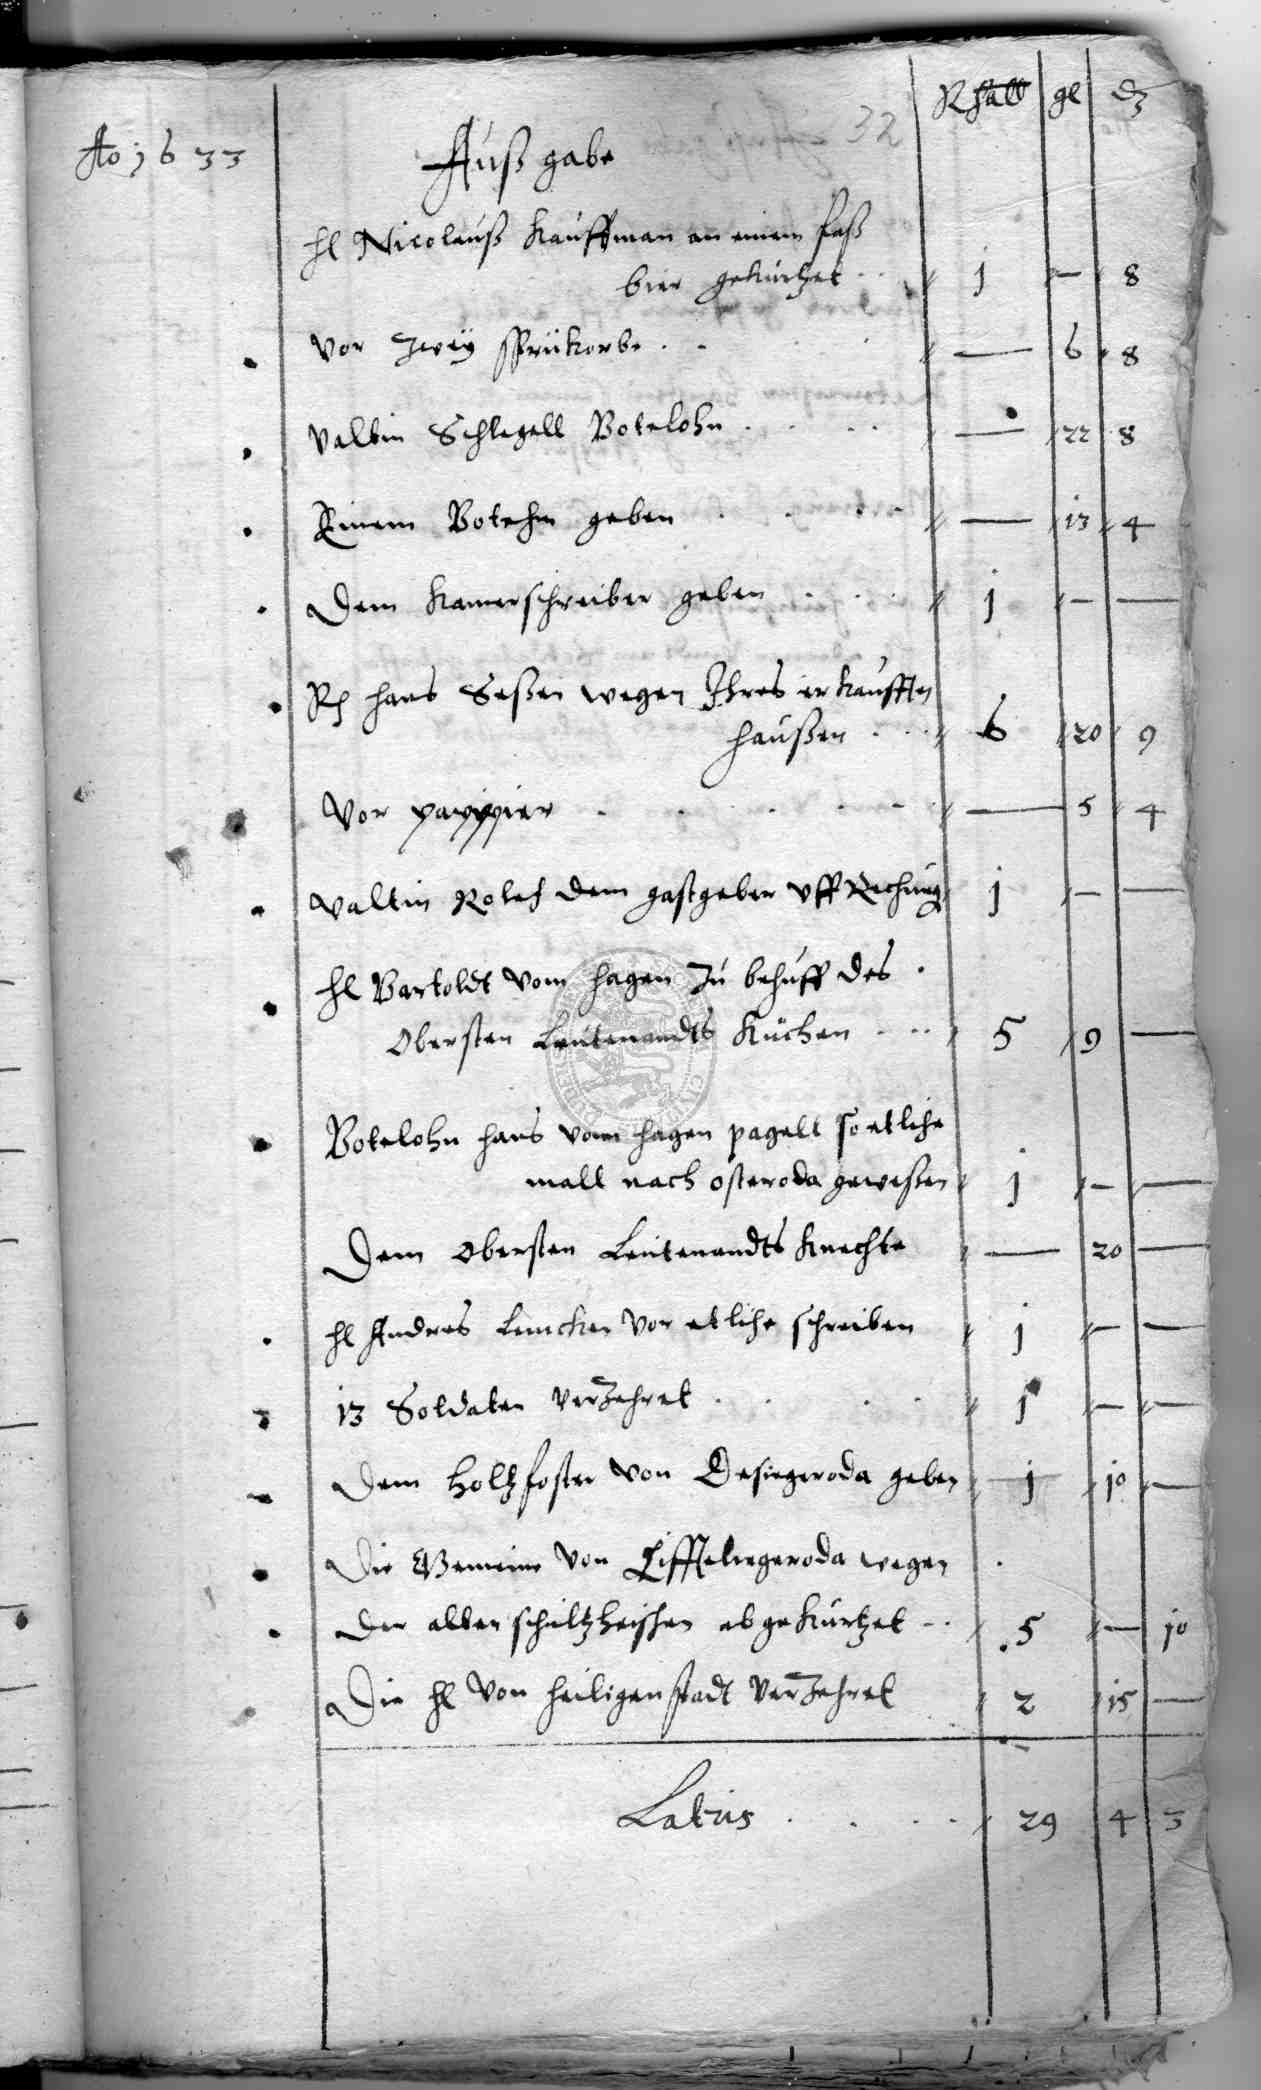 32
Rthall gl d
Ao 1633 Außgabe
Hl Nicolauß Kauffman an einem faß
bier gekürtzet . . 1 — 8
Vor zweÿ Sprükorbe . . — 6 8
Valtin Schlegell Botelohn . . . . — 22 8
Einem Botehn geben . . . . — 13 4
Dem Kamerschreiber geben . . . 1 — —
Hans Seßen wegen Ihres erkaufften
Haußen . . . 6 20 9
Vor pappier . . . . . — 5 4
Valtin Rolef dem gastgeber uff Rechnung 1 — —
Hl Bartoldt vom Hagen zu behuff des
Obersten Leutenandts Küchen . . . . 5 9 —
Botelohn Hans vom Hagen pagelt so etliche
mall nach osteroda geweßen 1 — —
Dem Obersten Leutenandts Knechte — 20 —
Hl Andres Lincken vor etliche schreiben 1 — —
13 Soldaten verzehret . . . . 1 — —
Dem Holtzfoster von Desingeroda geben 1 10 —
Die Gemeine von Eifftelingeroda wegen
der alten schultzheischen abgekürtzet . . 5 — 10
Die Hl von Heiligenstadt verzehret 2 15 —
Latus . . . . 29 4 3